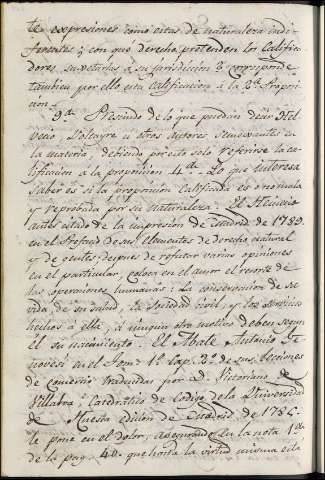 te expresiones como estas de naturaleza indi-
ferentes; con que derecho pretenden los Califica
dores sujetarlas à su jurisdiccion? Corresponde
tambien por ello esta calificacion à la 2ª Proposi
cion.
9ª Prescindo de lo que puedan decir Hel-
vecio, Voltayre u otros autores semexantes en
la materia, debiendo por esto solo referirse la ca-
lificacion à la proposicion 4ª Lo que interesa
saber es si la proposicion calificada es anomala
y reprobada por su naturaleza. El Heineccio
antes citado de la impresion de Madrid de 1789.
en el Prefacio de sus elementos de derecho natural
y de gentes, despues de refutar varias opiniones
en el particular, coloca en el amor el resorte de
las operaciones humanas: La conservacion de su
vida, de su salud, la sociedad civil, y los servicios
hechos à ella, à ningun otro motivo deben segun
el su nacimiento. El Abate Antonio Ge-
novesi en el Tomo 1º Cap. 3º de sus Lecciones
de comercio traducidas por D. Victoriano de
Villava, Catedratico de Codigo de la Universidad
de Huesca edicion de Madrid de 1785.
le pone en el dolor, asegurando en la nota 1ª
de la pag. 40. que hasta la virtud misma esta